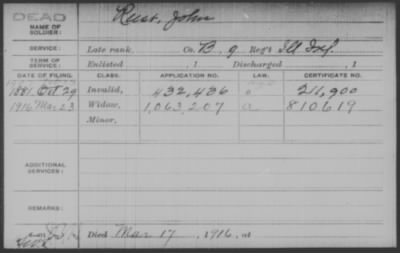 DEAD
NAME OF SOLDIER: Rust, John
SERVICE: Late rank, Co. B, 9 Reg't Ill Inf.
TERM OF SERVICE: Enlisted , 1 Discharged , 1
DATE OF FILING. CLASS. APPLICATION NO. LAW. CERTIFICATE NO.
1881 Oct 29 Invalid, 432,436 211,900
1916 Mar 23 Widow, 1,063,207 810619
Minor,
ADDITIONAL SERVICES:
REMARKS:
Died Mar 17, 1916, at